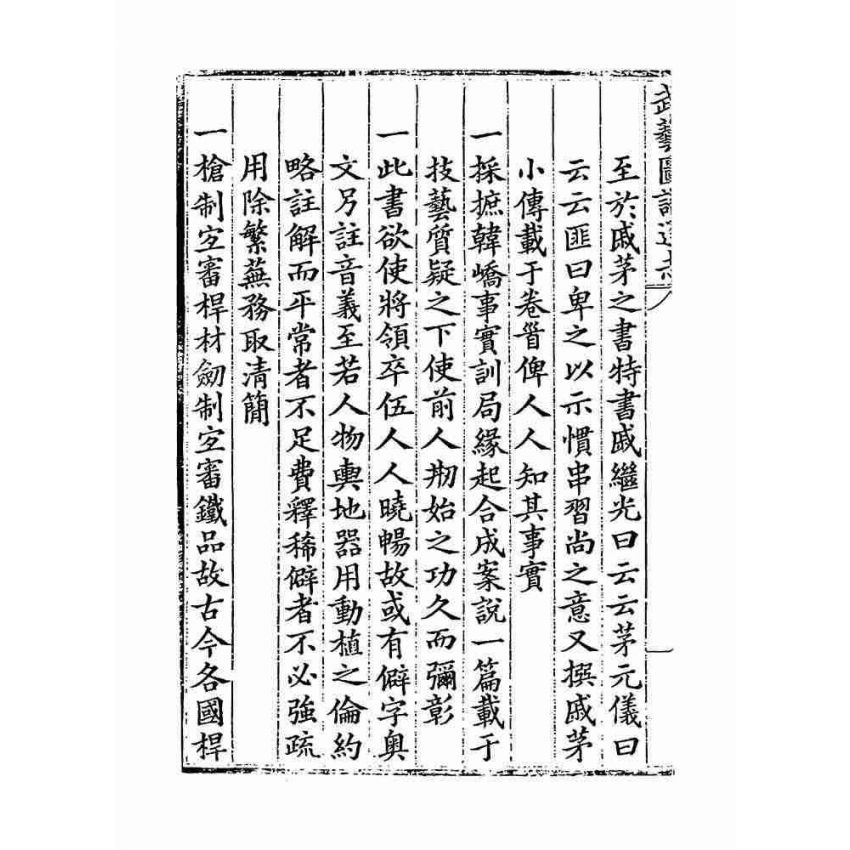 武藝圖譜通志
至於戚茅之書特書戚繼光曰云云茅元儀曰
云云匪曰卑之以示慣串習尚之意又撰戚茅
小傳載于卷首俾人人知其事實
一採摭韓嶠事實訓局緣起合成案說一篇載于
技藝質疑之下使前人刱始之功久而彌彰
一此書欲使將領卒伍人人曉暢故或有僻字奧
文乃註音義至若人物輿地器用動植之倫約
略註解而平常者不足費釋稀僻者不必強疏
用除繁蕪務取清簡
一槍制宜審桿材劒制宜審鐵品故古今各國桿